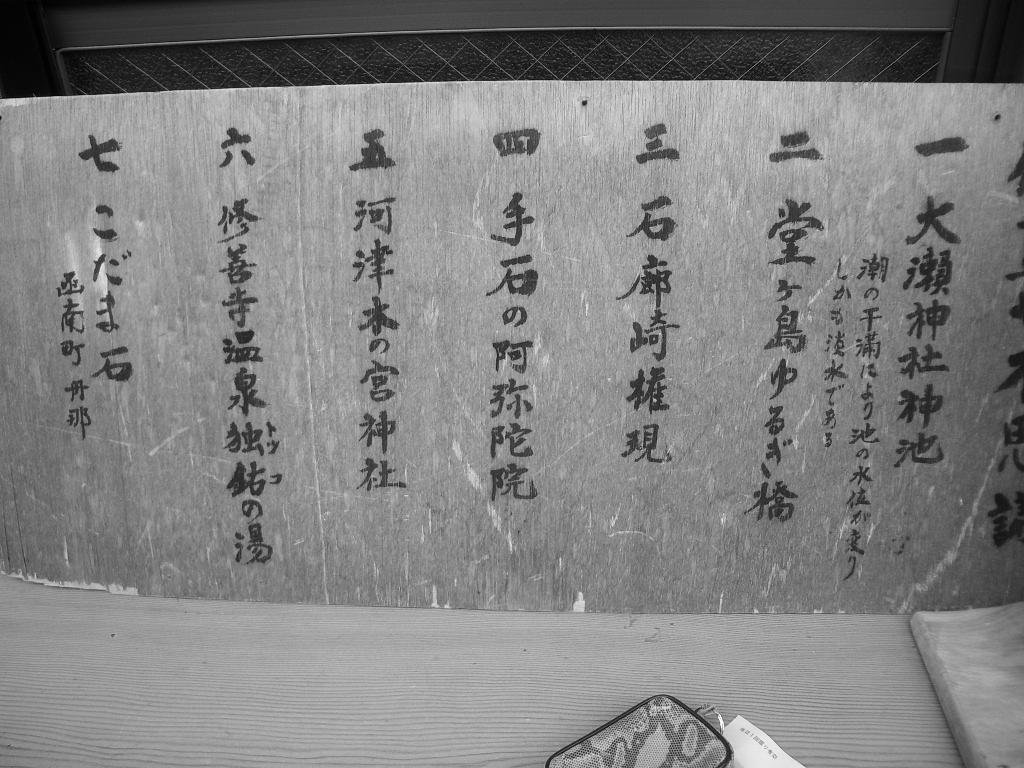 七不思議
一 大瀬神社神池
潮の干満により池の水位が変り
しかも淡水である
二 堂ヶ島ゆるぎ橋
三 石廊崎権現
四 手石の阿弥陀院
五 河津来の宮神社
六 修善寺温泉独鈷の湯
トツコ
七 こだま石
函南町丹那